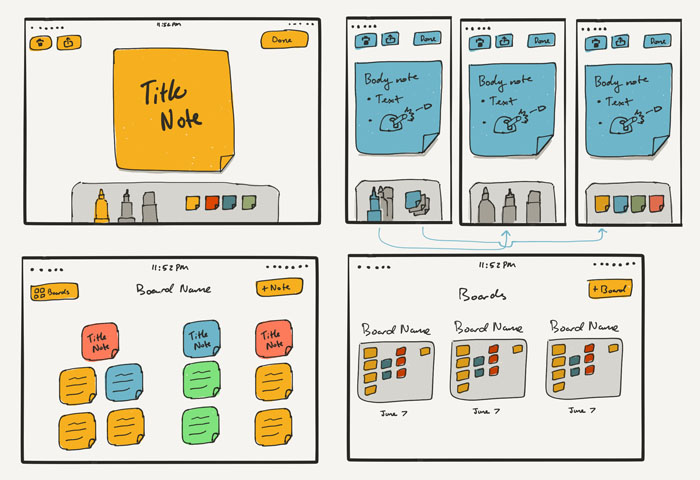 11:52 PM
Done
Title
Note
Done
Body note
• Text
Done
Body note
• Text
Done
Body note
• Text
11:52 PM
Boards
Board Name
+ Note
Title
Note
Title
Note
Title
Note
11:52 PM
Boards
+ Board
Board Name
Board Name
Board Name
June 7
June 7
June 7